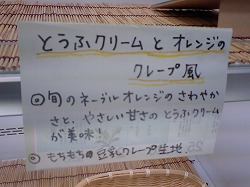 とうふクリームと オレンジの
クレープ風
◎旬のネーブルオレンジのさわやか
さと、やさしい甘さのとうふクリーム
が美味!
◎もちもちの豆乳クレープ生地